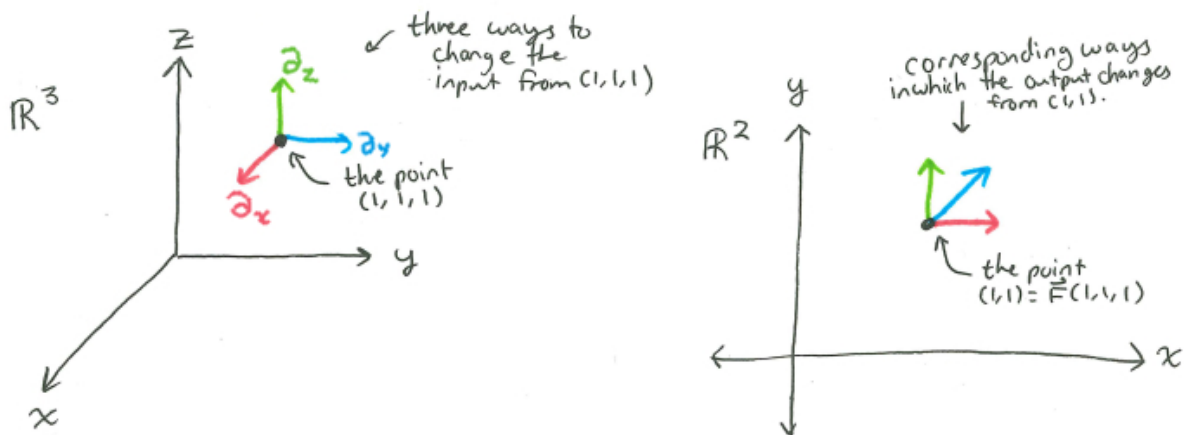 three ways to
change the
input from (1,1,1)
z
∂z
ℝ³
∂y
the point
(1,1,1)
∂x
y
x
corresponding ways
in which the output changes
from (1,1).
y
ℝ²
the point
(1,1) = F⃗(1,1,1)
x